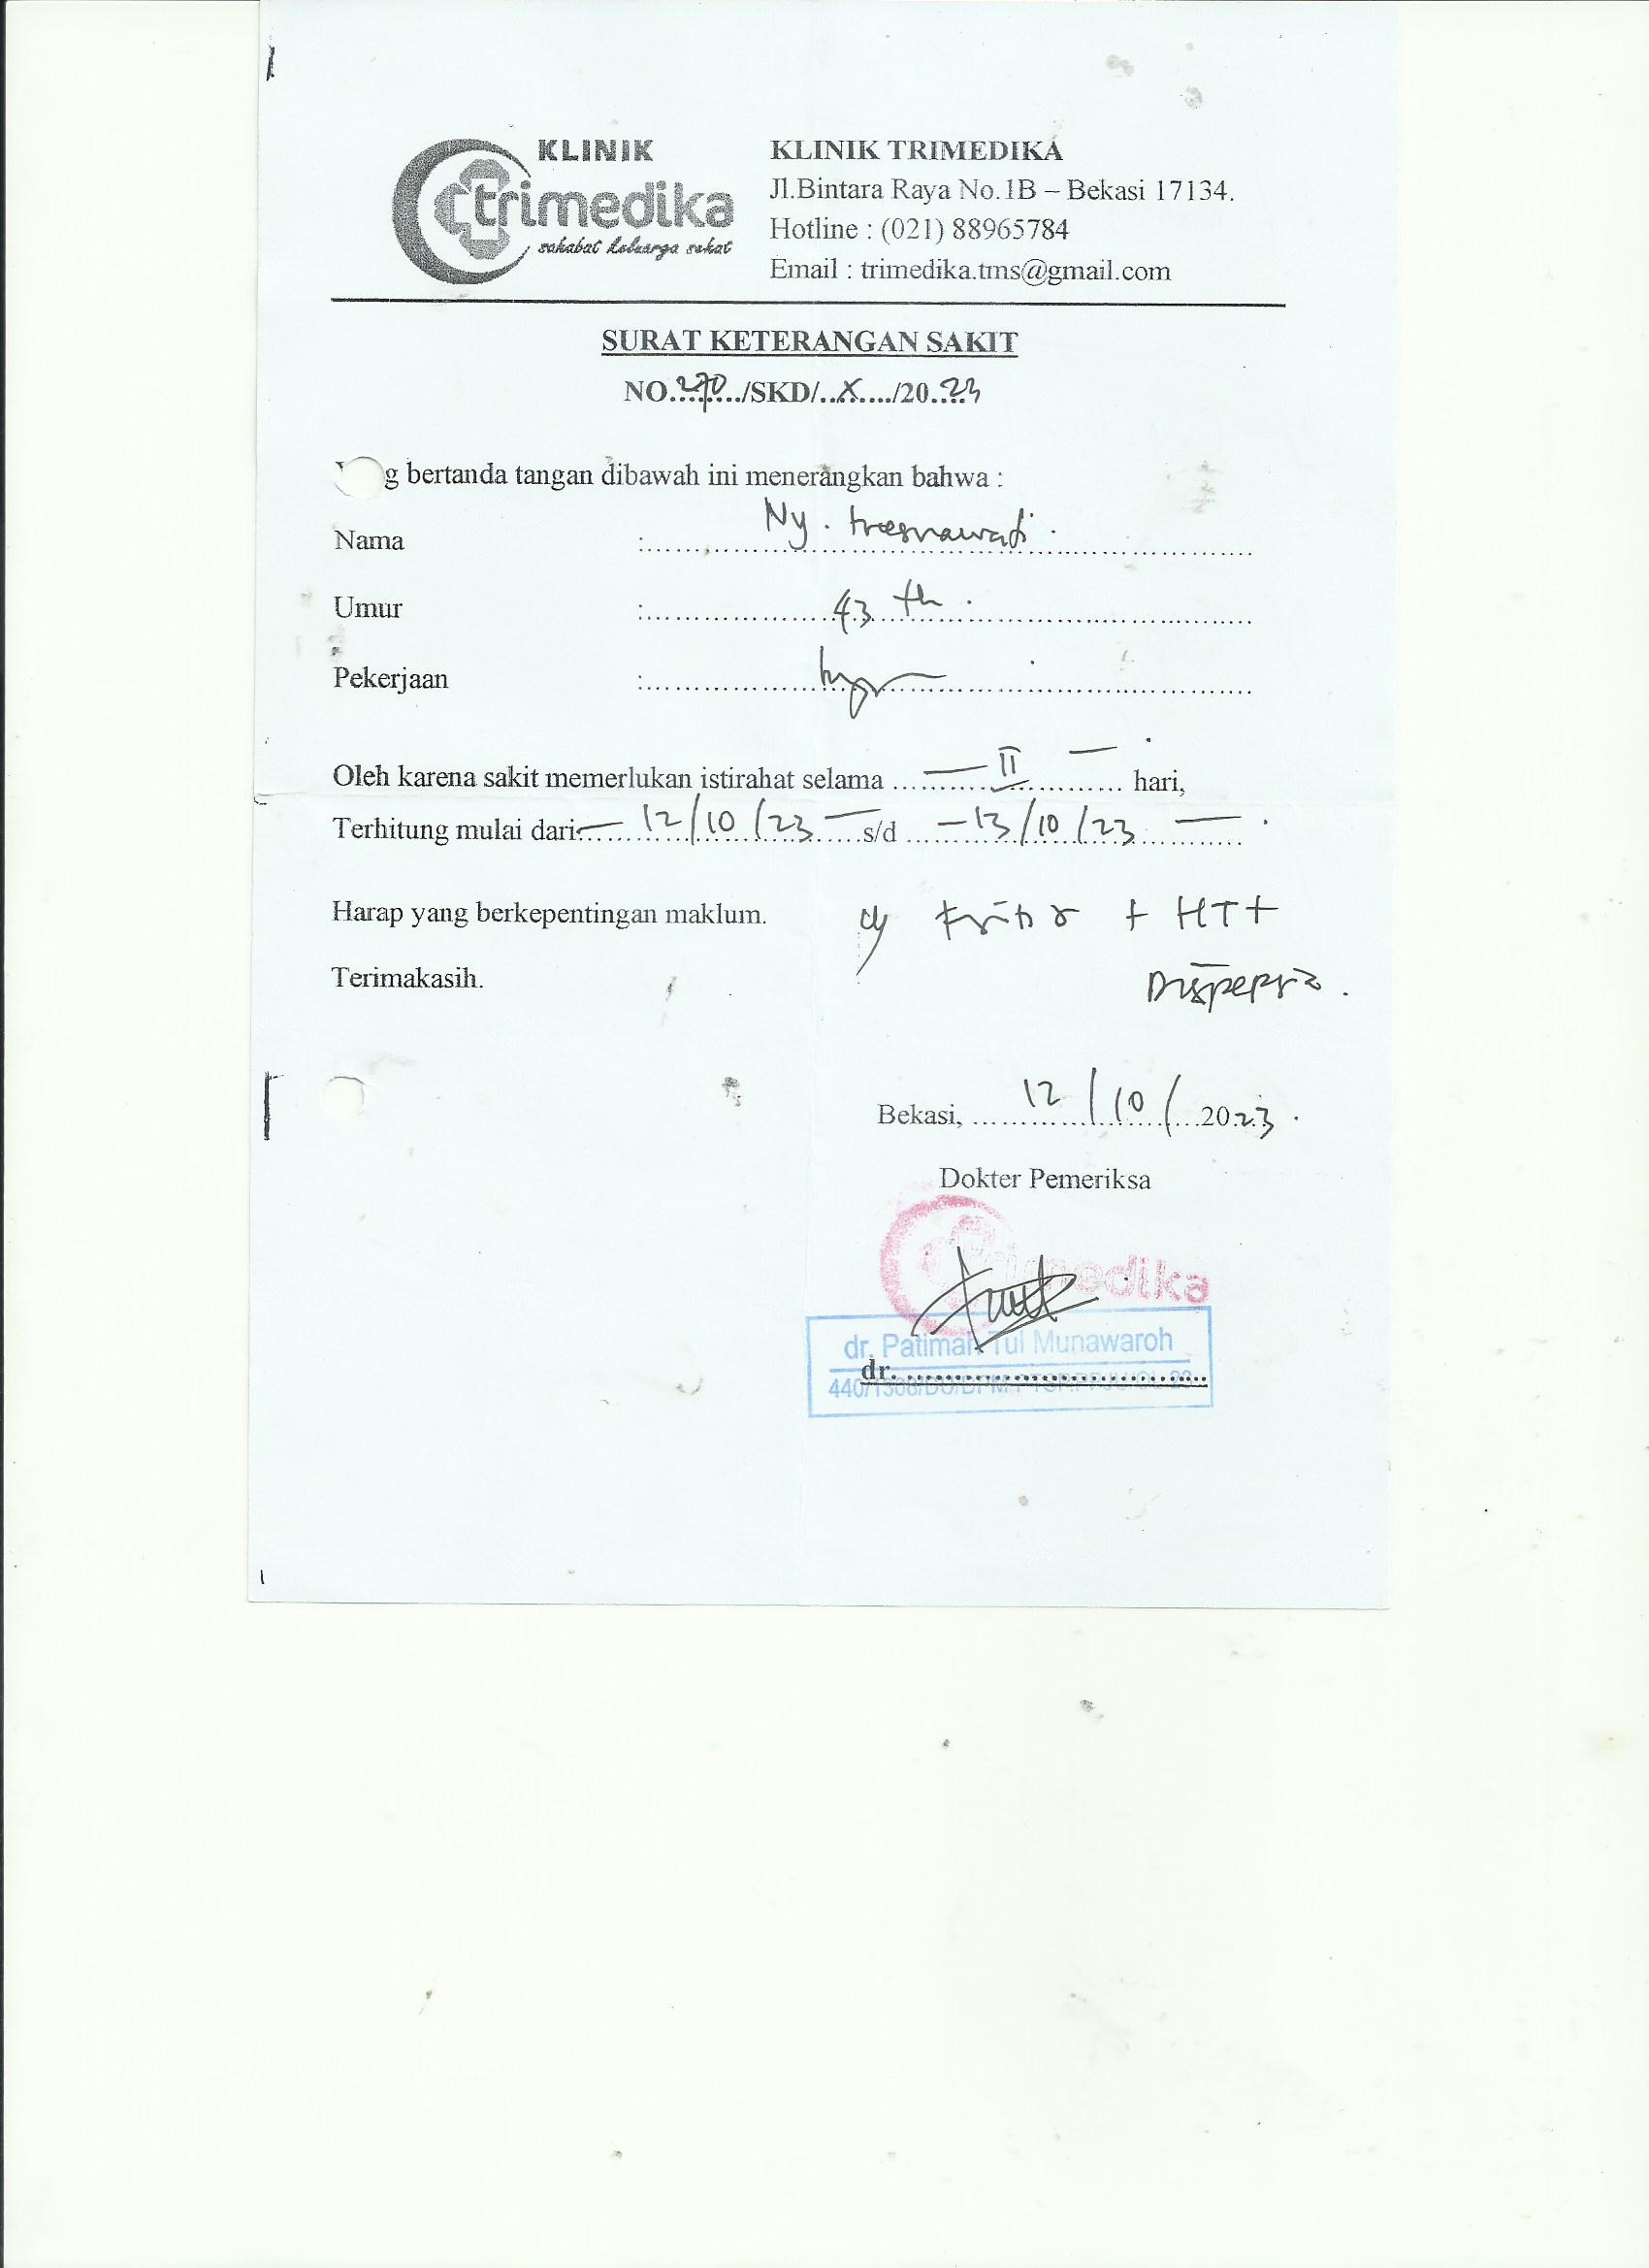 KLINIK
trimedika
sahabat keluarga sehat
KLINIK TRIMEDIKA
Jl.Bintara Raya No.1B – Bekasi 17134.
Hotline : (021) 88965784
Email : trimedika.tms@gmail.com
SURAT KETERANGAN SAKIT
NO. 270 /SKD/ X /20 23
g bertanda tangan dibawah ini menerangkan bahwa :
Nama : Ny. tresnawati
Umur : 43 th
Pekerjaan :
Oleh karena sakit memerlukan istirahat selama — II — hari,
Terhitung mulai dari — 12/10/23 — s/d — 13/10/23 —
Harap yang berkepentingan maklum.
+ HT +
Terimakasih.
Dispepsia.
Bekasi, 12/10/2023.
Dokter Pemeriksa
trimedika
dr. Patimah Tul Munawaroh
dr.